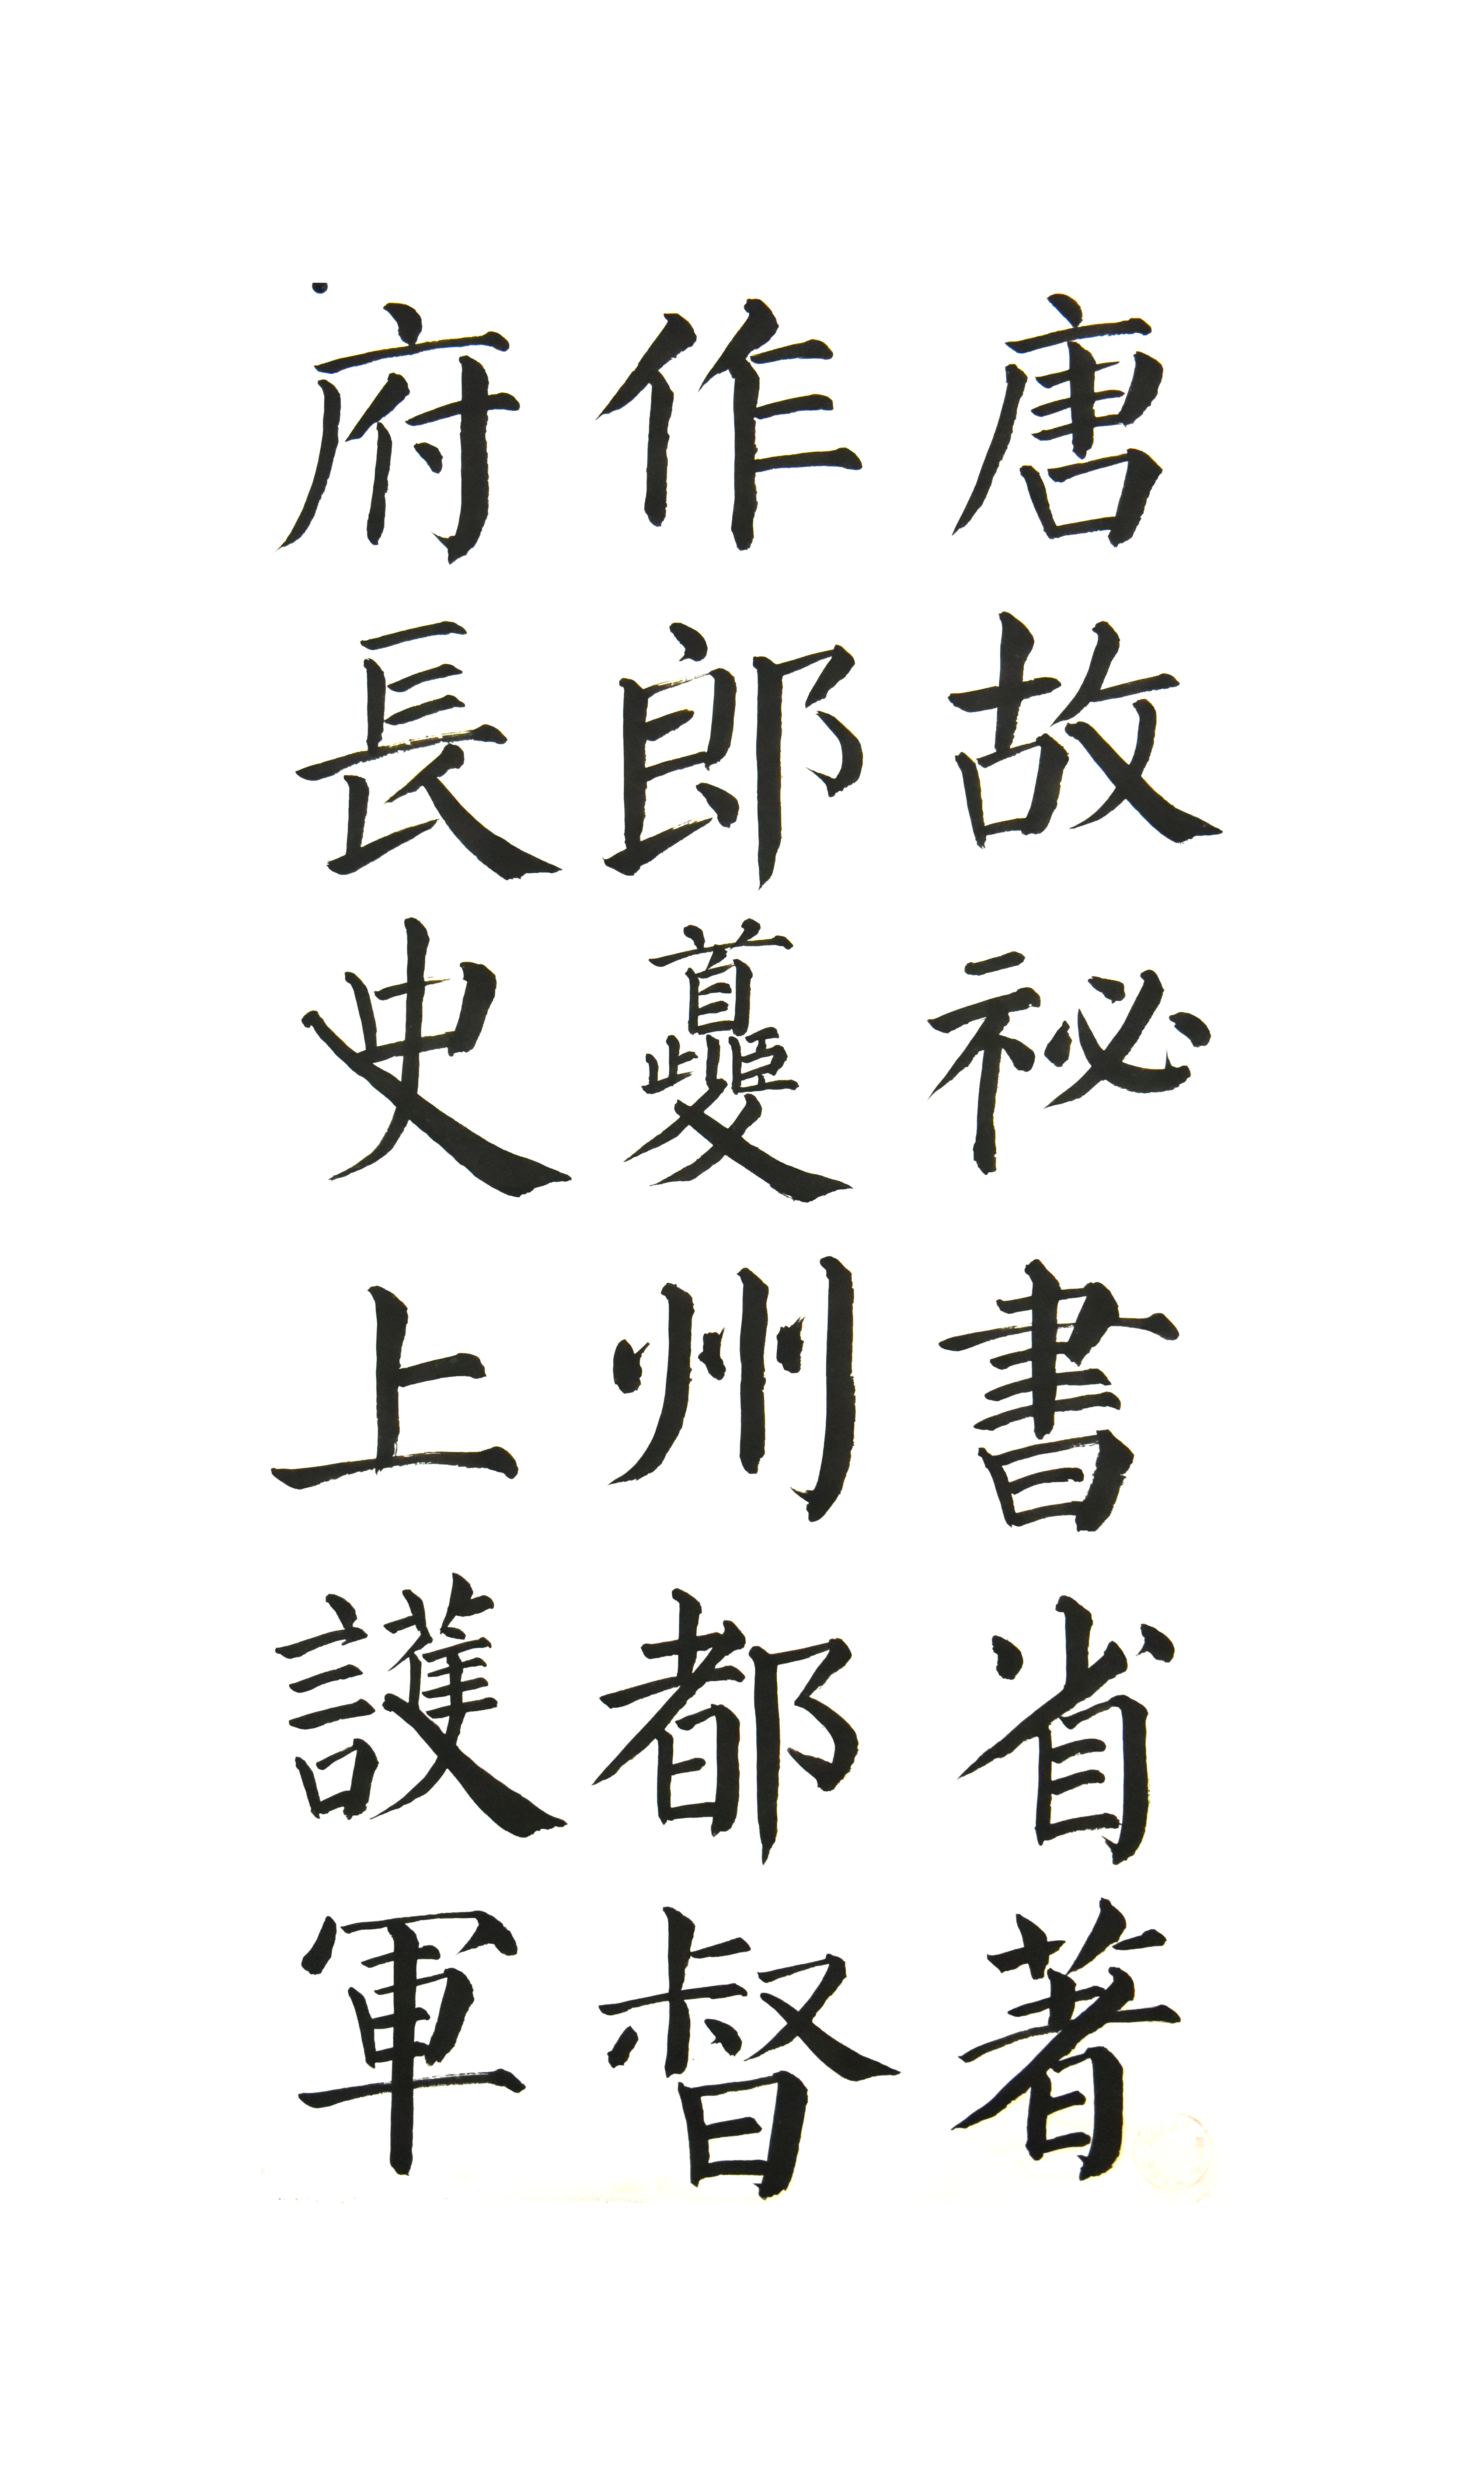 唐故祕書省著
作郎夔州都督
府長史上護軍